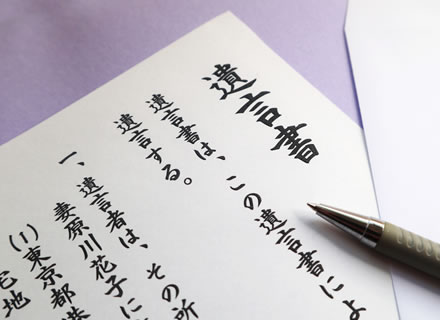 遺言書
遺言書は、この遺言書によ
遺言する。
一、遺言者は、その所
妻原川花子に
(1)東京都港
宅地